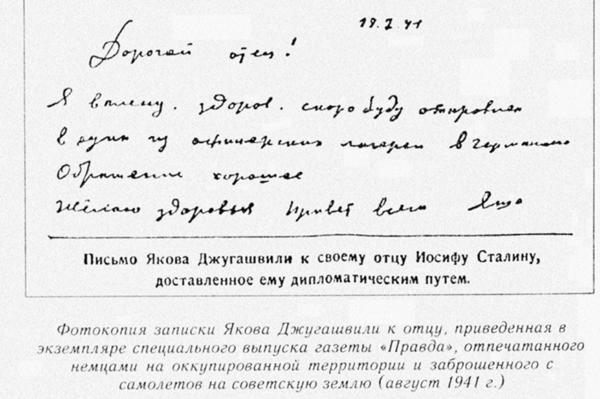 19.7.41
Дорогой отец!
Я в плену. здоров. скоро буду отправлен
в один из офицерских лагерей в Германии
Обращение хорошее
Желаю здоровья Привет всем Яша
Письмо Якова Джугашвили к своему отцу Иосифу Сталину,
доставленное ему дипломатическим путем.
Фотокопия записки Якова Джугашвили к отцу, приведенная в
экземпляре специального выпуска газеты «Правда», отпечатанного
немцами на оккупированной территории и заброшенного с
самолетов на советскую землю (август 1941 г.)